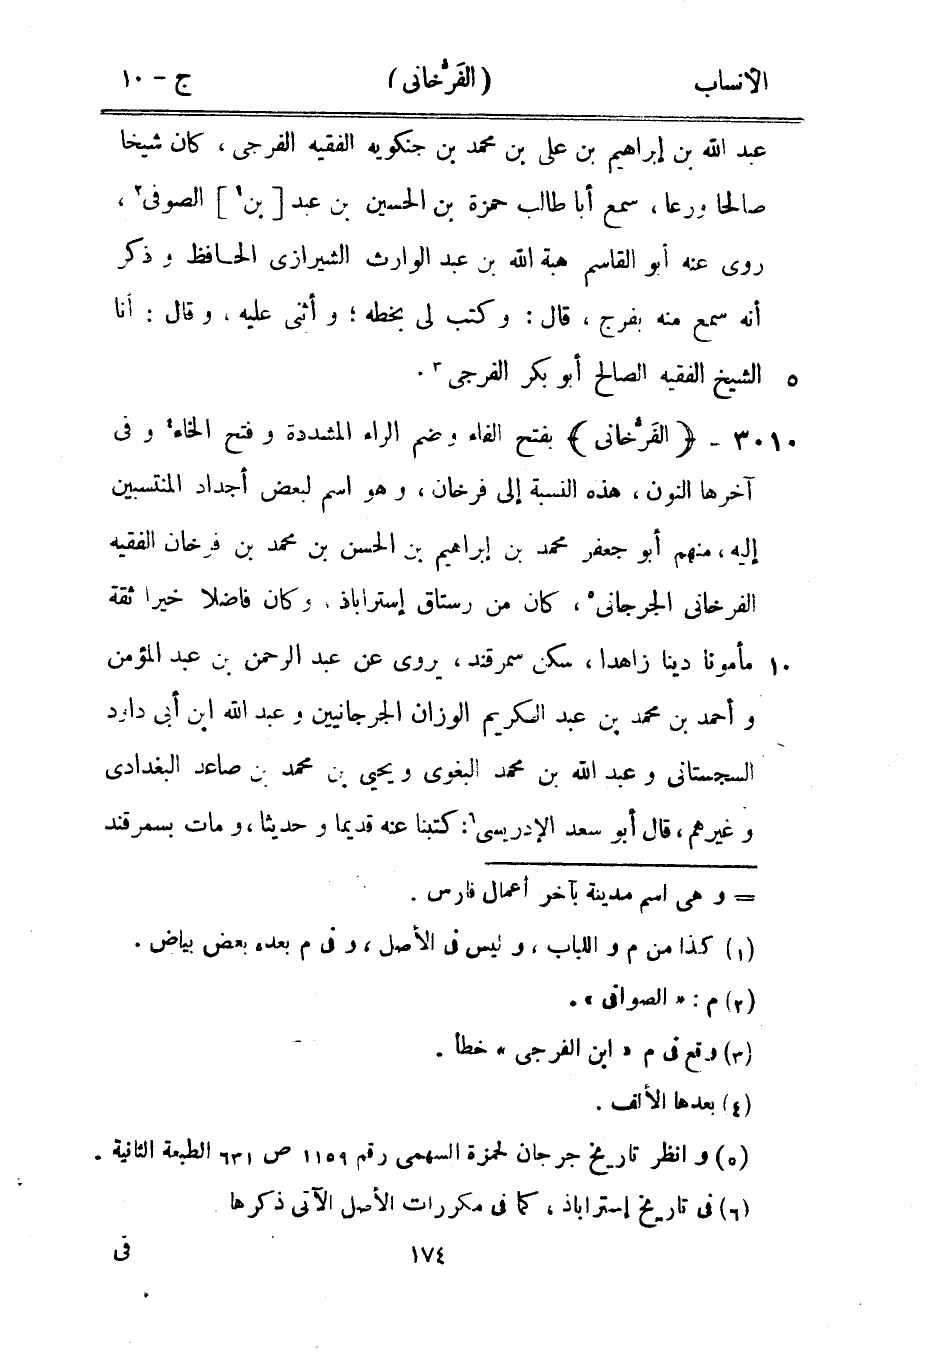 الأنساب (الفَرُّخانى) ج - ١٠
عبد الله بن إبراهيم بن على بن محمد بن جنكويه الفقيه الفرجى ، كان شيخا
صالحا ورعا ، سمع أبا طالب حمزة بن الحسين بن عبد [ بن١ ] الصوفى٢ ،
روى عنه أبو القاسم هبة الله بن عبد الوارث الشيرازى الحافظ و ذكر
أنه سمع منه بفرج ، قال : و كتب لى بخطه ؛ و أثنى عليه ، و قال : أنا
٥ الشيخ الفقيه الصالح أبو بكر الفرجى ٣ .
٣٠١٠ - ﴿ الفَرُّخانى ﴾ بفتح الفاء و ضم الراء المشددة و فتح الخاء٤ و فى
آخرها النون ، هذه النسبة إلى فرخان ، و هو اسم لبعض أجداد المنتسبين
إليه ، منهم أبو جعفر محمد بن إبراهيم بن الحسن بن محمد بن فرخان الفقيه
الفرخانى الجرجانى٥ ، كان من رستاق إستراباذ ، وكان فاضلا خيرا ثقة
١٠ مأمونا دينا زاهدا ، سكن سمرقند ، يروى عن عبد الرحمن بن عبد المؤمن
و أحمد بن محمد بن عبد الكريم الوزان الجرجانيين و عبد الله ابن أبى داود
السجستانى و عبد الله بن محمد البغوى و يحيى بن محمد بن صاعد البغدادى
و غيرهم ، قال أبو سعد الإدريسى٦ : كتبنا عنه قديما و حديثا ، و مات بسمرقند
= و هى اسم مدينة بآخر أعمال فارس .
(١) كذا من م و اللباب ، و ليس فى الأصل ، و فى م بعده بعض بياض .
(٢) م : « الصوافى » .
(٣) وقع فى م « ابن الفرجى » خطأ .
(٤) بعدها الألف .
(٥) و انظر تاريخ جرجان لحمزة السهمى رقم ١١٥٩ ص ٦٣١ الطبعة الثانية .
(٦) فى تاريخ إستراباذ ، كما فى مكررات الأصل الآتى ذكرها
١٧٤ فى